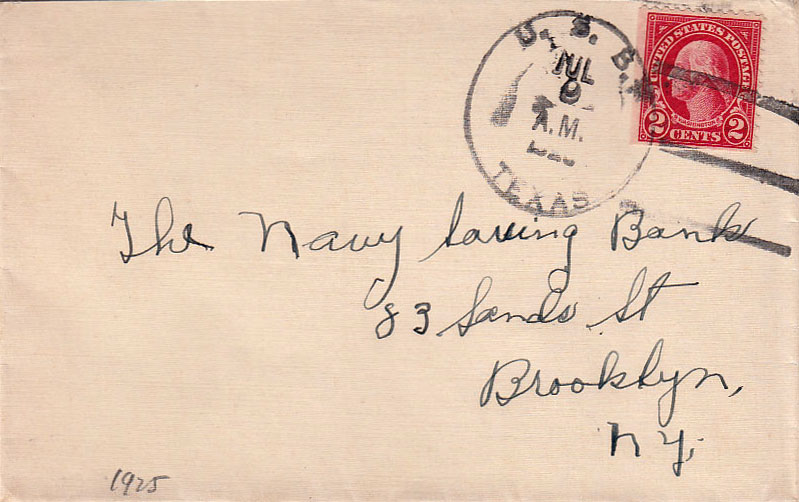 U. S. S.
JUL
9
A.M.
TEXAS
UNITED STATES POSTAGE
WASHINGTON
2 CENTS 2
The Navy Saving Bank
83 Sands St
Brooklyn,
N.Y.
1925